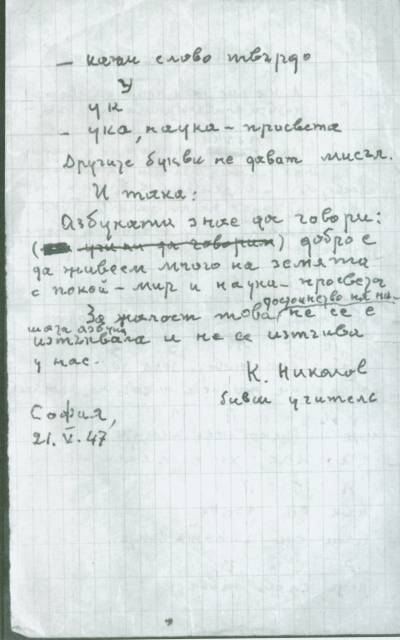 – кажи слово твърдо
У
ук
– ука, наука – просвета
Другите букви не дават мисъл.
И така:
Азбуката знае да говори:
( учили да говорим) добро е
да живеем много на земята
с покой – мир и наука – просвета
За жалост това достойнство на на-
шата азбука не се е
изтъквала и не се изтъква
у нас.
К. Николов
бивш учитель
София,
21.V.47